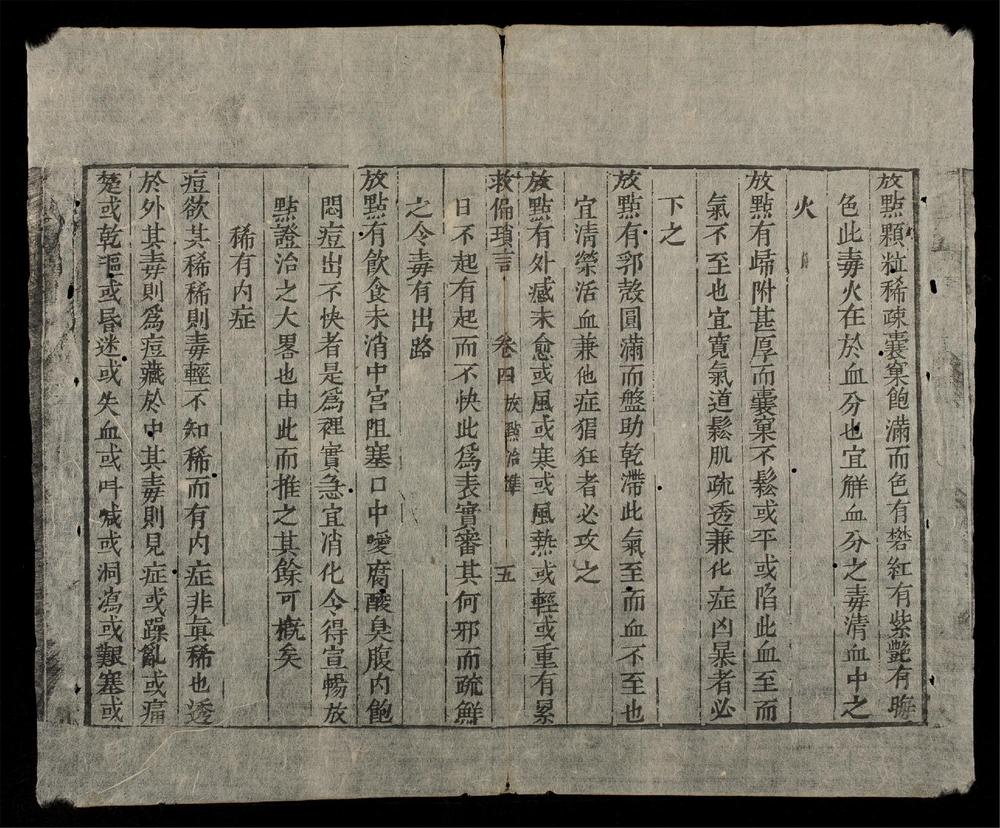 放點顆粒稀疎囊窠飽滿而色有礬紅有紫艷有晦
色此毒火在於血分也宜解血分之毒清血中之
火
放點有歸附甚厚而囊窠不鬆或平或陷此血至而
氣不至也宜寛氣道鬆肌疏透兼化症凶暴者必
下之
放點有郛殼圓滿而盤助乾滯此氣至而血不至也
宜清榮活血兼他症猖狂者必攻之
放點有外感未愈或風或寒或風熱或輕或重有累
救偏瑣言 卷四 放點治準 五
日不起有起而不快此爲表實審其何邪而疏觧
之令毒有出路
放點有飲食未消中宮阻塞口中噯腐酸臭腹内飽
悶痘出不快者是爲裡實急宜消化令得宣暢放
點證治之大畧也由此而推之其餘可槪矣
稀有内症
痘欲其稀稀則毒輕不知稀而有内症非眞稀也透
於外其毒則爲痘藏於中其毒則見症或躁亂或痛
楚或乾漚或昏迷或失血或呌喊或洞瀉或艱塞或